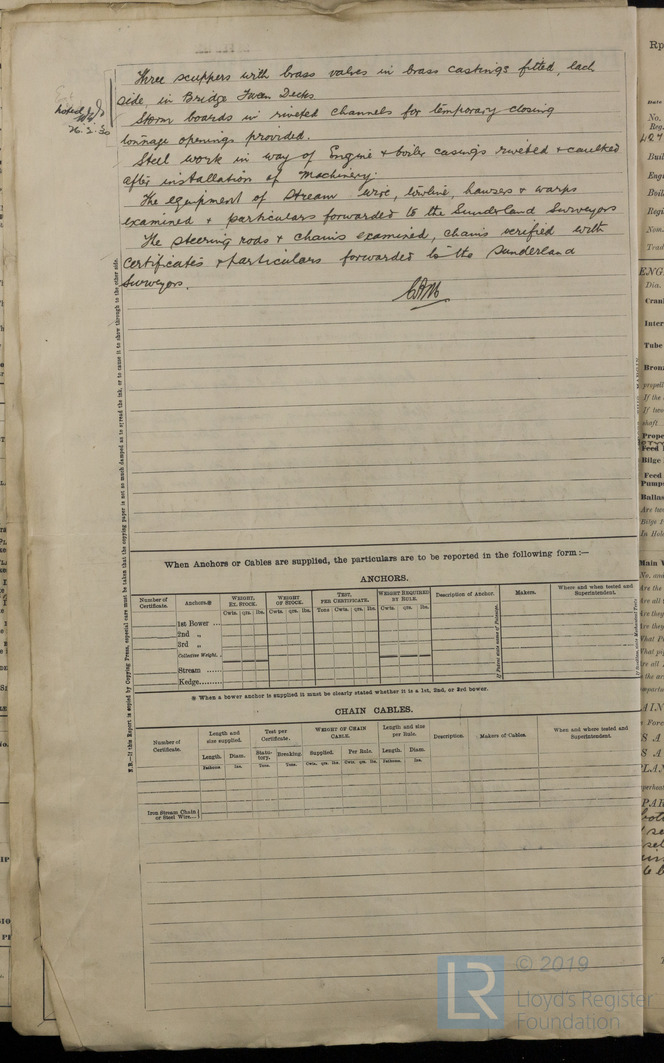 Three scuppers with brass valves in brass castings fitted, each
side in Bridge Tween Decks.
Storm boards in riveted channels for temporary closing
tonnage openings provided.
Steel work in way of Engine & boiler casings riveted & caulked
after installation of Machinery.
The equipment of Stream wire, towline, hawsers & warps
examined & particulars forwarded to the Sunderland Surveyors
The steering rods & chains examined, chains verified with
Certificates & particulars forwarded to the Sunderland
Surveyors.
Noted
26.2.30
N.B.—If this Report is copied by Copying Press, especial care must be taken that the copying paper is not so much damped as to spread the ink, or to cause it to show through to the other side.
When Anchors or Cables are supplied, the particulars are to be reported in the following form :—
ANCHORS.
Number of Certificate.
Anchors.※
WEIGHT. EX. STOCK.
WEIGHT OF STOCK.
TEST. PER CERTIFICATE.
WEIGHT REQUIRED BY RULE.
Description of Anchor.
Makers.
Where and when tested and Superintendent.
Cwts. qrs. lbs.
Cwts. qrs. lbs.
Tons Cwts. qrs. lbs.
Cwts. qrs. lbs.
1st Bower ...
2nd „
3rd „
Collective Weight.
Stream ......
Kedge.........
※ When a bower anchor is supplied it must be clearly stated whether it is a 1st, 2nd, or 3rd bower.
CHAIN CABLES.
Number of Certificate.
Length and size supplied.
Test per Certificate.
WEIGHT OF CHAIN CABLE.
Length and size per Rule.
Description.
Makers of Cables.
When and where tested and Superintendent.
Length. Diam.
Statutory. Breaking.
Supplied. Per Rule.
Length. Diam.
Fathoms. Ins. Tons. Tons. Cwts. qrs. lbs. Cwts. qrs. lbs. Fathoms. Ins.
Iron Stream Chain
or Steel Wire...
LR
© 2019
Lloyd's Register
Foundation